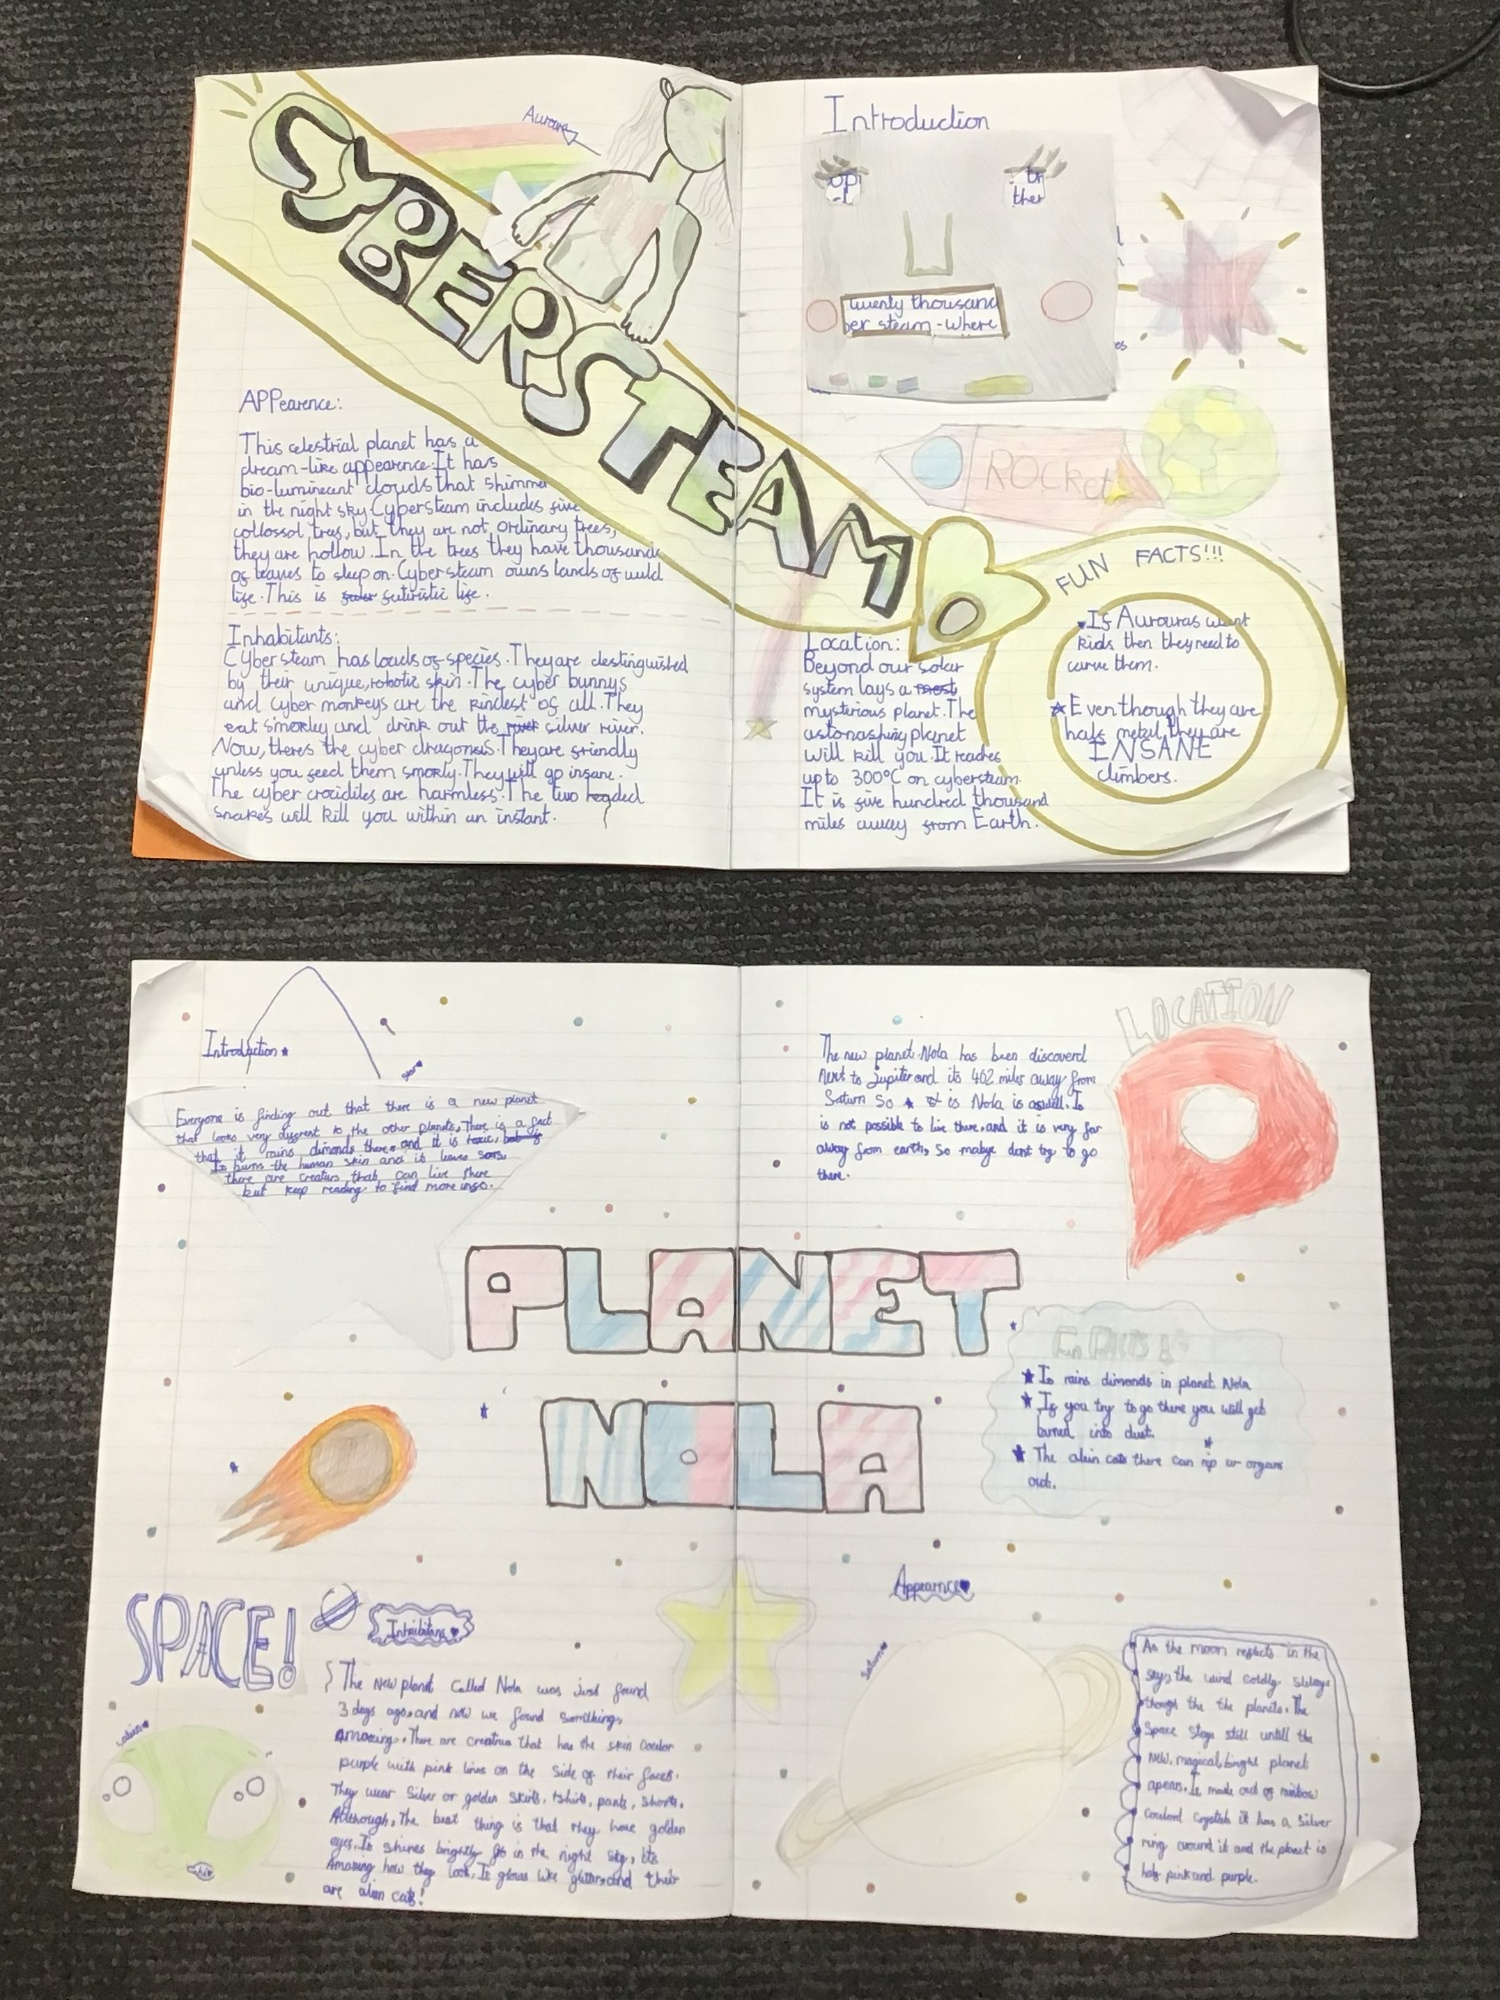 CYBERSTEAM
Auroura
APPearence:
This celestrial planet has a
dream-like appearence. It has
bio-luminecent clouds that shimmer
in the night sky. Cybersteam includes five
collossol tres, but they are not ordinary trees,
they are hollow. In the trees they have thousands
of leaves to sleep on. Cybersteam owns lands of wild
life. This is futuristic life.
Inhabitants:
Cybersteam has loads of species. They are destinguished
by their unique, robotic skin. The cyber bunnys
and cyber monkeys are the kindest of all. They
eat smorley and drink out the river silver river.
Now, theres the cyber dragons. They are friendly
unless you feed them smorly. They will go insane.
The cyber crocidiles are harmless. The two headed
snakes will kill you within an instant.
Introduction
ther
twenty thousand
ber steam - where
ROCKet
Location:
Beyond our solar
system lays a most
mysterious planet. The
astonashing planet
will kill you. It reaches
up to 300°C on cybersteam.
It is five hundred thousand
miles away from Earth.
FUN FACTS!!!
If Aurouras want
kids then they need to
carve them.
Even though they are
half metal, they are
INSANE
climbers.
Introduction
star
Everyone is finding out that there is a new planet
that looks very diffrent to the other planets, There is a fact
that it rains dimonds there and it is toxic,
It burns the human skin and it leaves scars
there are creaturs that can live there
but keep reading to find more info.
LOCATION
The new planet Nola has been discoverd
next to Jupiter and its 462 miles away from
Saturn so is Nola is aswell. It
is not possible to live there, and it is very far
away from earth, So mabye dont try to go
there.
PLANET
NOLA
Fun Facts!
It rains dimonds in planet Nola
If you try to go there you will get
burned into dust.
The alein cats there can rip ur organs
out.
SPACE!
Inhabitans
alein
The New planet called Nola was just found
3 days ago, and now we found something
amazing. There are creatrua that has the skin coulor
purple with pink lines on the side of their faces.
They wear Silver or golden skirts, tshirts, pants, shorts.
Although, The best thing is that they have golden
eyes. It shines brightly in the night sky, Its
Amazing how they look, It glows like glitter, and their
are alien cats!
Appearnce
Saturn
As the moon reflects in the
sky, the wind coldly
though the the planets. The
Space stays still untill the
New, magical, bright planet
apears. It made out of rainbow
coulord crystals it has a silver
ring around it and the planet is
half pink and purple.